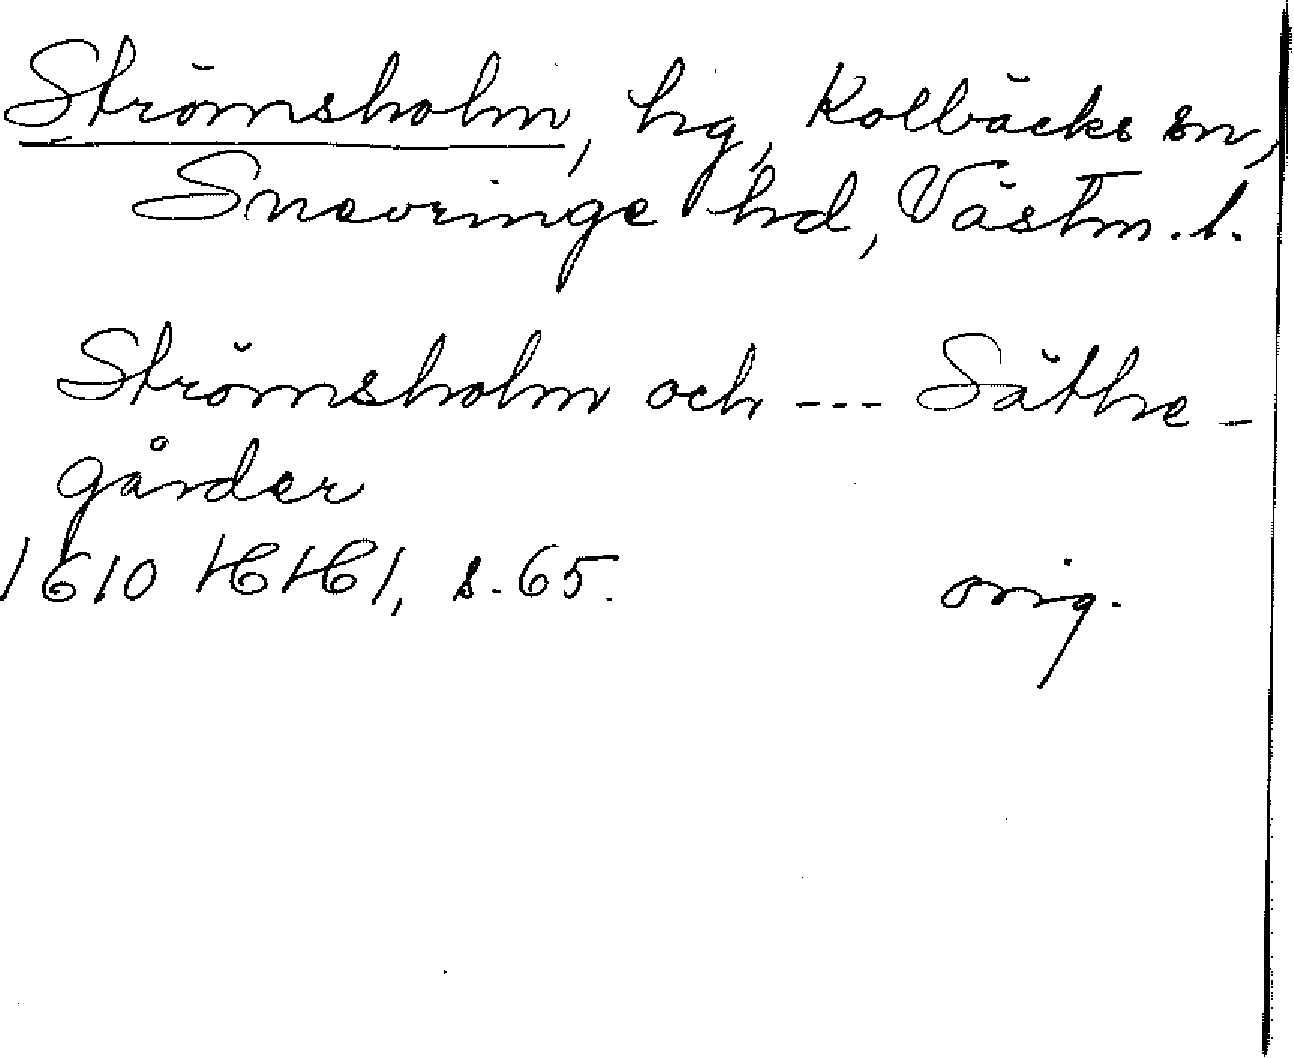 Strömsholm, hg, Kolbäcks sn,
Snevringe hd, Västm. l.
Strömsholm och --- Säthe-
gårder
1610 HH1, s. 65. orig.